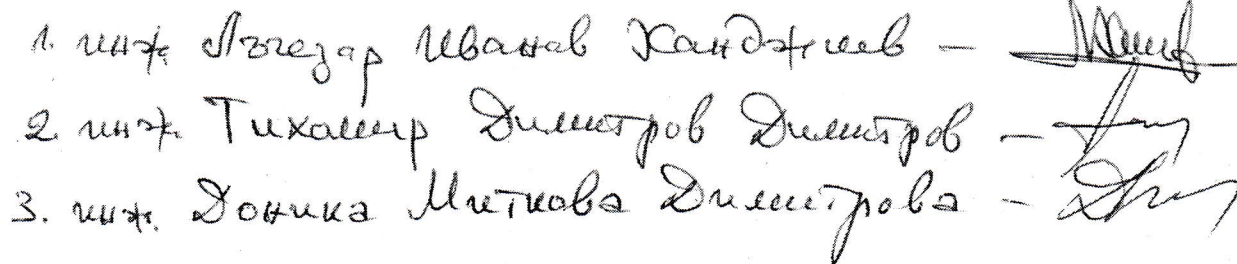 1. инж. Лъчезар Иванов Ханджиев -
2. инж. Тихомир Димитров Димитров -
3. инж. Доника Миткова Димитрова -